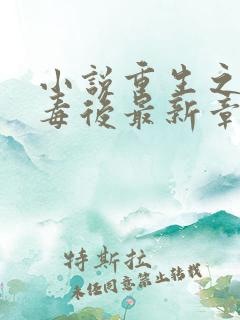 小說重生之
毒後最新章
特斯拉
未經同意禁止轉載